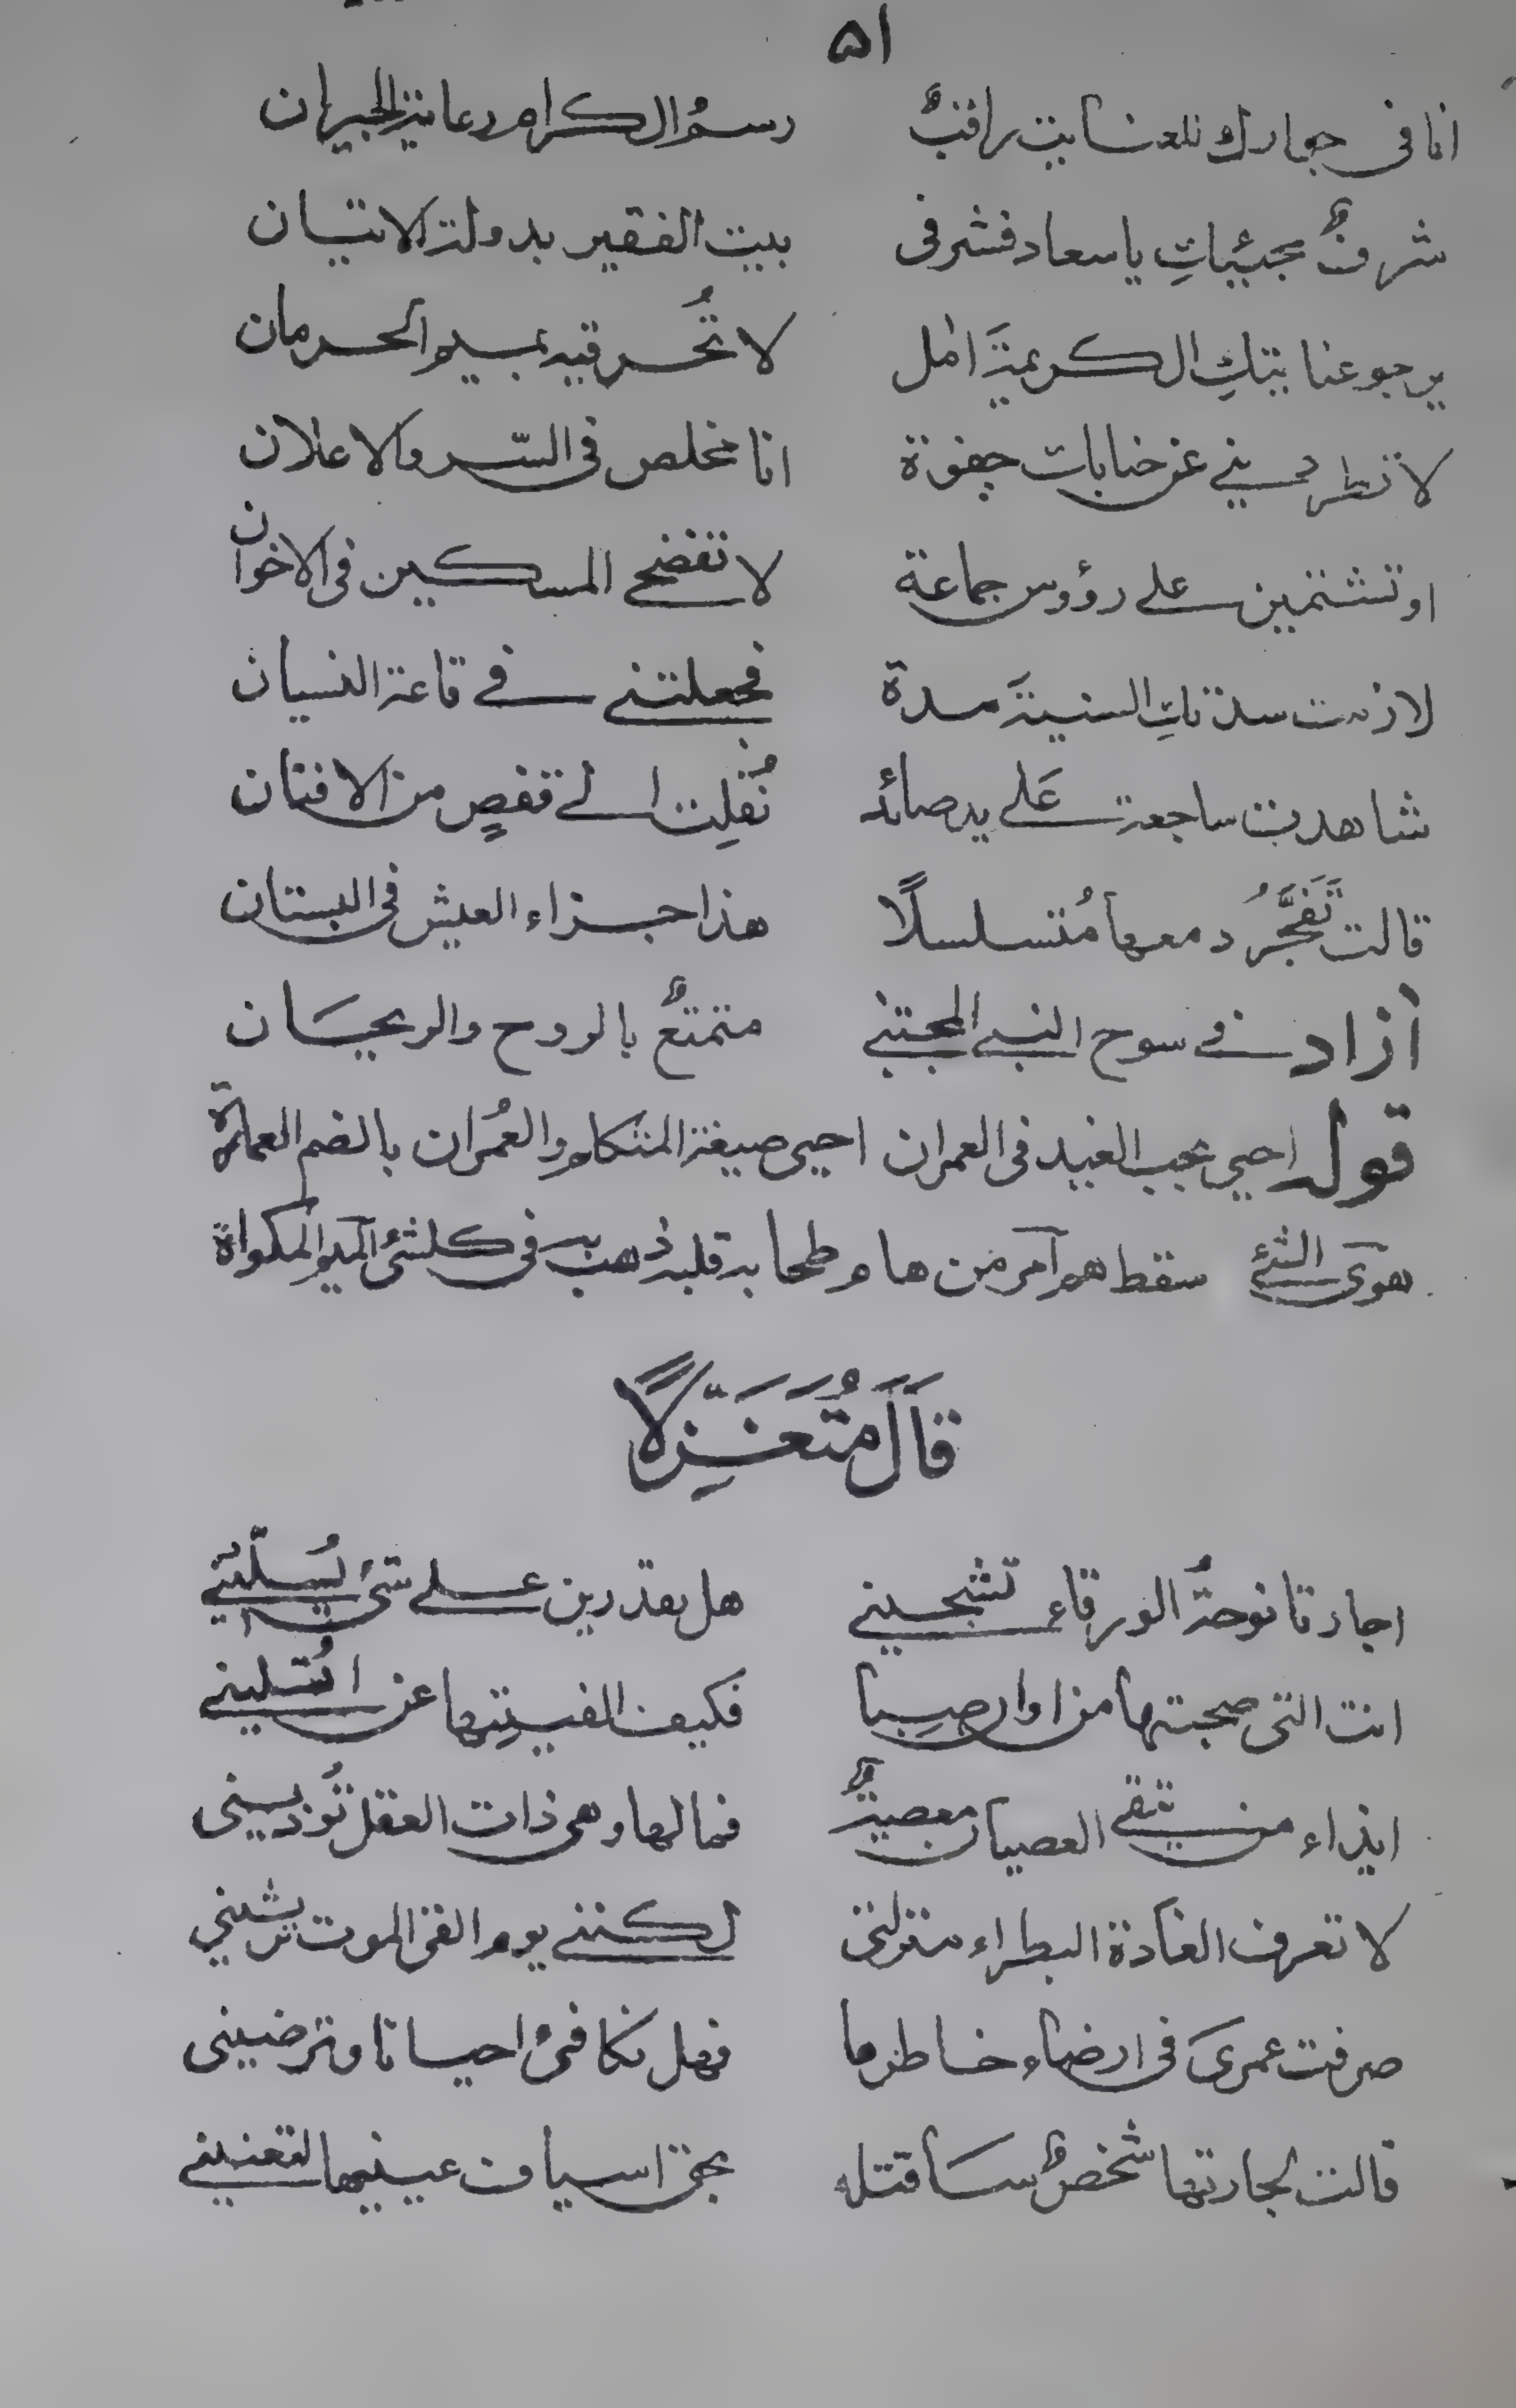 ٥١
انا فى جوارك للعناية راقبٌ رسمُ الكرام رعاية الجيران
شرفٌ مجيئكِ يا سعاد فشرفى بيت الفقير بدولة الاتيان
يرجو عنايتكِ الكريمةَ امل لا تُحرقيه بميسم الحرمان
لا تطرديني عن جنابك جفوة انا مخلص فى السّر والاعلان
او تشتمين على رؤوس جماعة لا تفضحى المسكين فى الاخوان
لازمت سدتكِ السنيةَ مدة فجعلتنى فى قاعة النسيان
شاهدت ساجعة عَلى يد صائد نُقلِت الى قفصٍ من الافنان
قالت تَفَجَّرُ دمعها مُتسلسلًا هذا جزاء العيش فى البستان
أزاد فى سوح النبى المجتبى متمتعٌ بالروح والريحَان
قوله احيى بحب الغيد فى العمران احيى صيغة المتكلم والعُمران بالضم العمارة
هوى الشئ سقط هم آمر من هام وطحا به قلبه ذهب به فى كلشئ الميسم المكواة
قَالَ مُتَغَزِّلًا
اجارتا نوحةُ الورقاء تشجينى هل تقدرين على شئ يُسلّينى
انت التى صحبتها من اوان صبا فكيف الفيتِها عن امُتسلينى
ايذاء من يتقى العصيان معصيةٌ فما لها وهى ذات العقل تُوذينى
لا تعرف الغادة البطراء منزلتى لكننى يوم القى الموت ترثينى
صرفت عمرىَ فى ارضاء خاطرها فهل تكافئ احيانا وترضينى
قالت لجارتها شخصٌ سَاقتله بحق اسياف عينيها لتعنينى